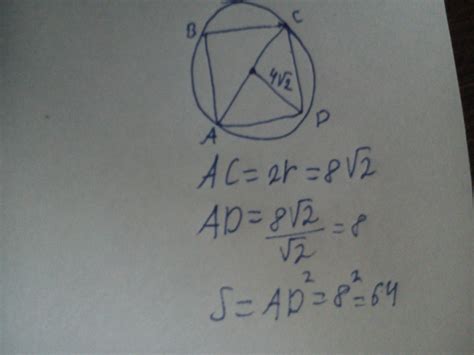 B C
4√2
A D
AC = 2r = 8√2
AD = 8√2/√2 = 8
S = AD² = 8² = 64